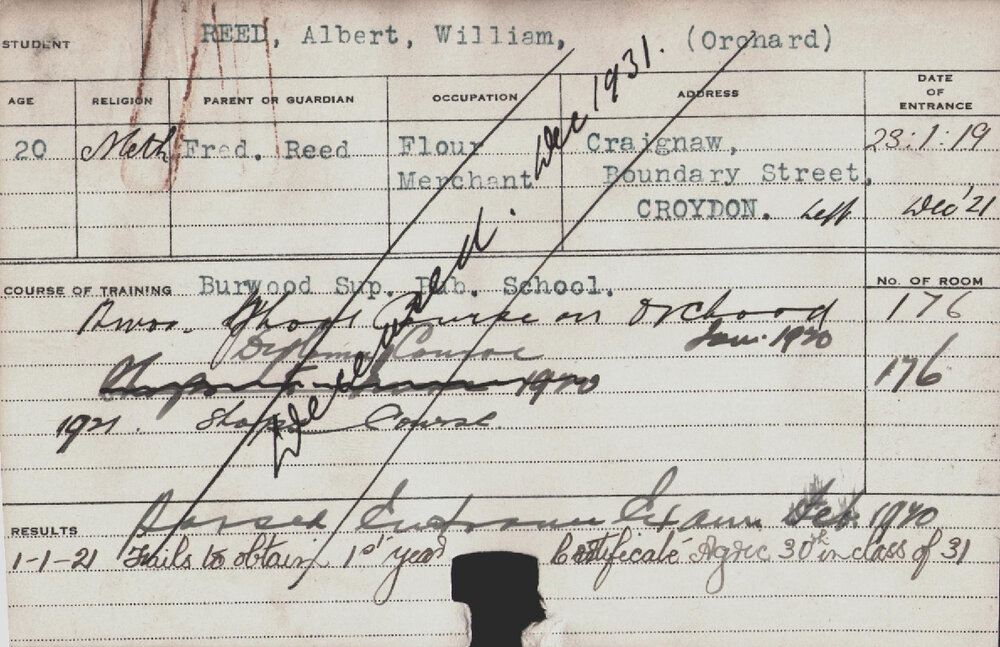 STUDENT REED, Albert, William, (Orchard)
AGE RELIGION PARENT OR GUARDIAN OCCUPATION ADDRESS DATE OF ENTRANCE
20 Meth Fred. Reed Flour Craignaw, 23:1:19
Merchant Boundary Street,
CROYDON. Left Dec '21
Deceased. Dec 1931.
COURSE OF TRAINING Burwood Sup. Pub. School. No. OF ROOM
Short Course on Orchard 176
Diploma Course Jan. 1920
1920 176
1921. Short Course.
RESULTS Passed Entrance Exam Feb. 1920
1-1-21 Fails to obtain 1st year Certificate Agric 30th in class of 31